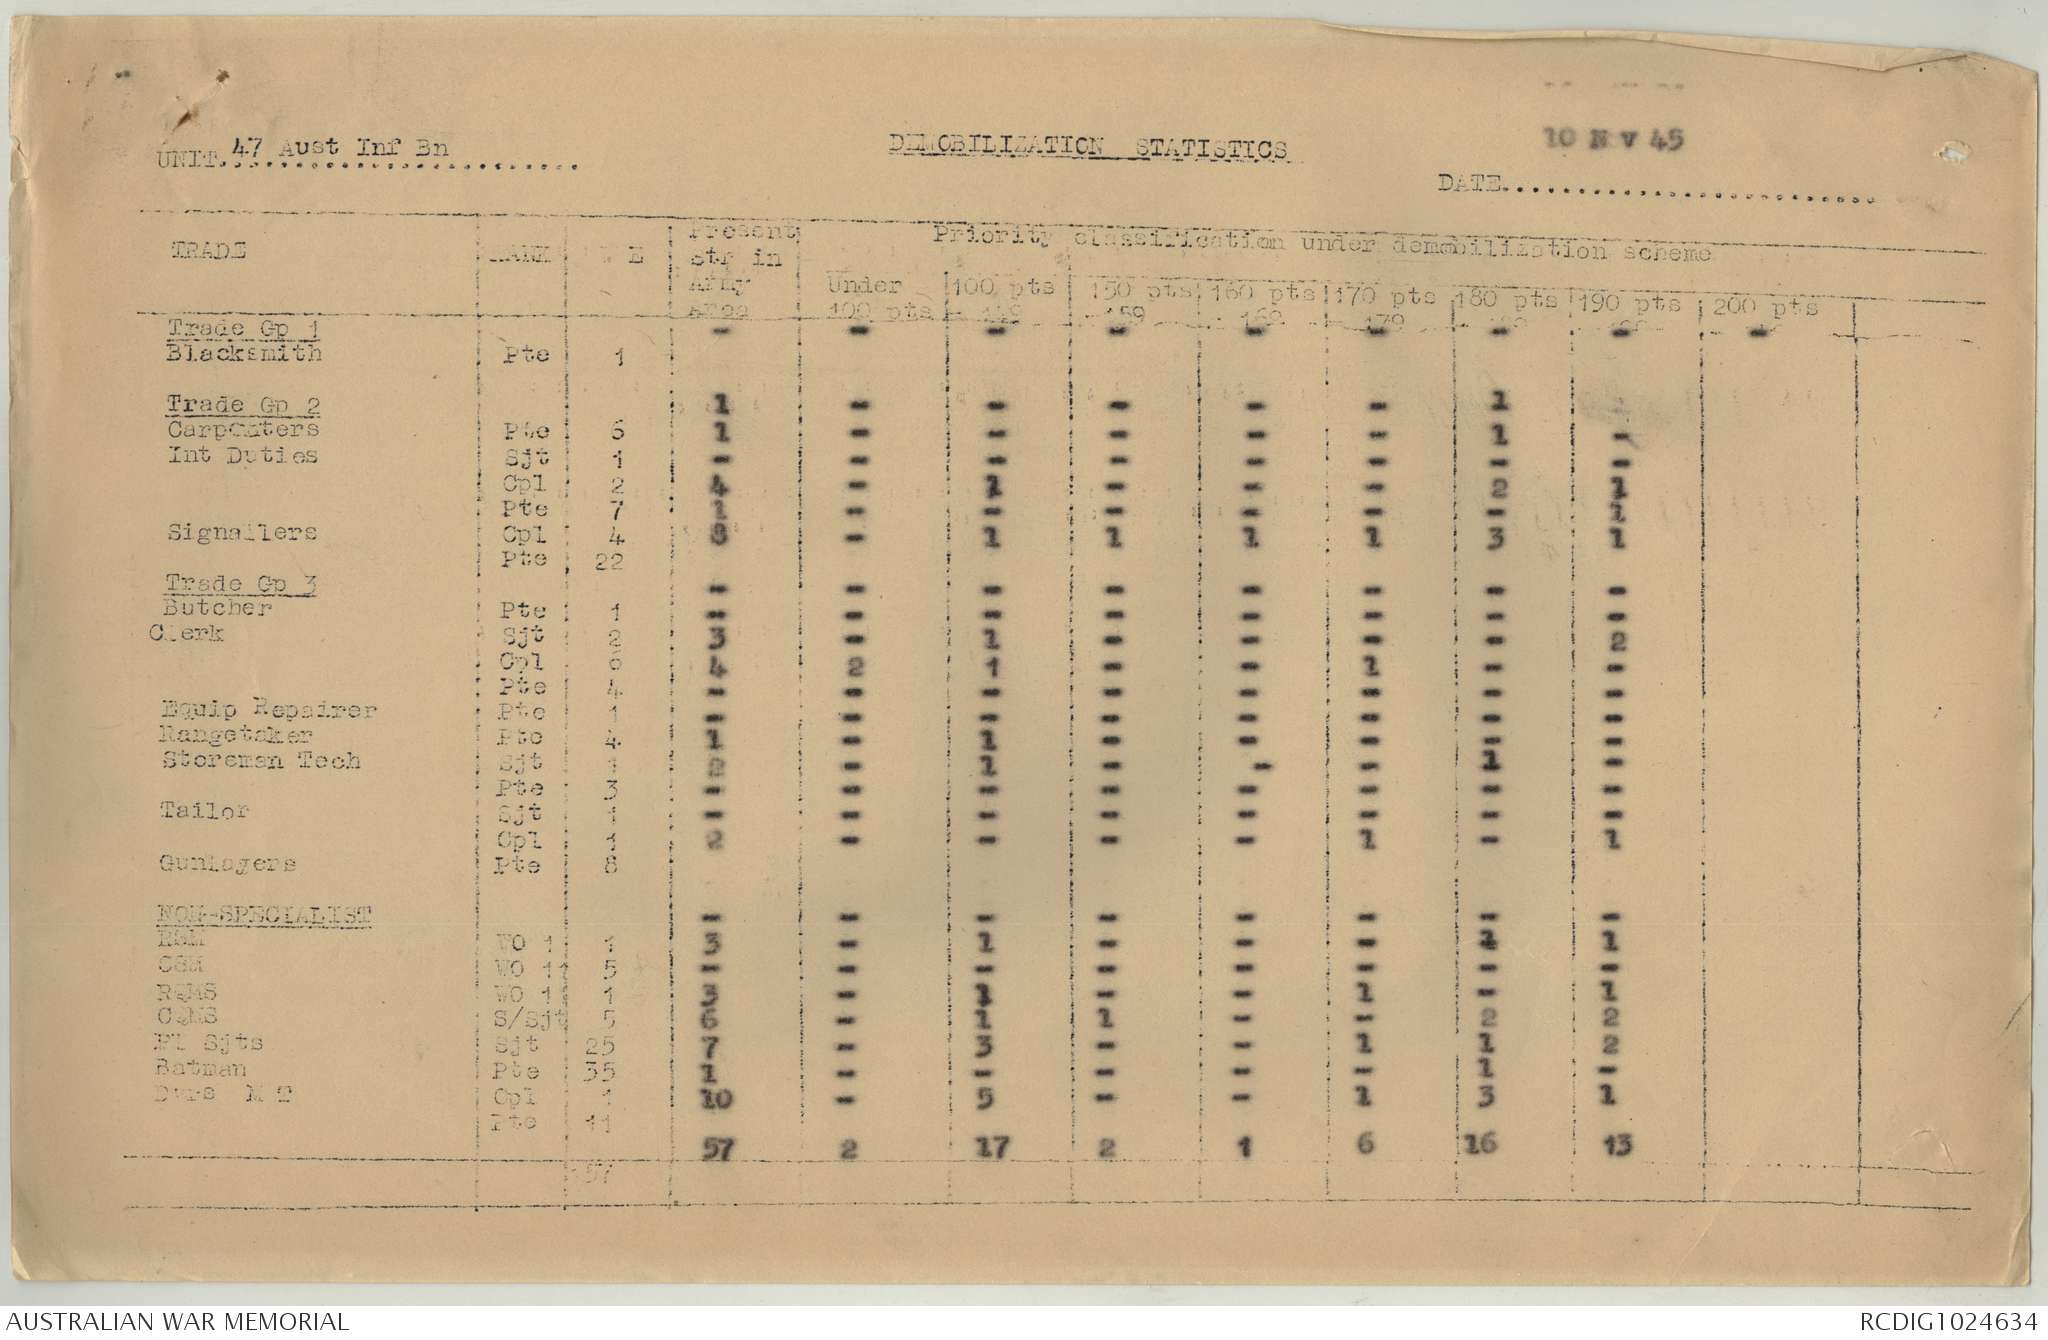 UNIT. 47 Aust Inf Bn
DEMOBILIZATION STATISTICS
10 N v 45
DATE
TRADE RANK W E Present Str in Army Area
Priority classification under demobilization scheme
Under 100 pts 100 pts 150 pts -159 160 pts 170 pts -179 180 pts 190 pts 200 pts
Trade Gp 1 - - - - - - - - -
Blacksmith Pte 1
Trade Gp 2 1 - - - - - 1
Carpenters Pte 6 1 - - - - - 1 -
Int Duties Sjt 1 - - - - - - - -
Cpl 2 4 - 1 - - - 2 1
Pte 7 1 - - - - - - 1
Signallers Cpl 4 8 - 1 1 1 1 3 1
Pte 22
Trade Gp 3 - - - - - - - -
Butcher Pte 1 - - - - - - - -
Clerk Sjt 2 3 - 1 - - - - 2
Cpl 4 2 1 - - 1 - -
Pte 4 - - - - - - - -
Equip Repairer Pte 1 - - - - - - - -
Rangetaker Pte 4 1 - 1 - - - - -
Storeman Tech Sjt 1 2 - 1 - - - 1 -
Pte 3 - - - - - - - -
Tailor Sjt 1 - - - - - - - -
Cpl 1 2 - - - - 1 - 1
Gunlayers Pte 8
NON-SPECIALIST - - - - - - - -
RSM WO 1 1 3 - 1 - - - 1 1
CSM WO 11 5 - - - - - - - -
RQMS WO 11 1 3 - 1 - - 1 - 1
CQMS S/Sjt 5 6 - 1 1 - - 2 2
Pl Sjts Sjt 25 7 - 3 - - 1 1 2
Batman Pte 35 1 - - - - - 1 -
Dvrs M T Cpl 1 10 - 5 - - 1 3 1
Pte 11
57 2 17 2 1 6 16 13
AUSTRALIAN WAR MEMORIAL
RCDIG1024634